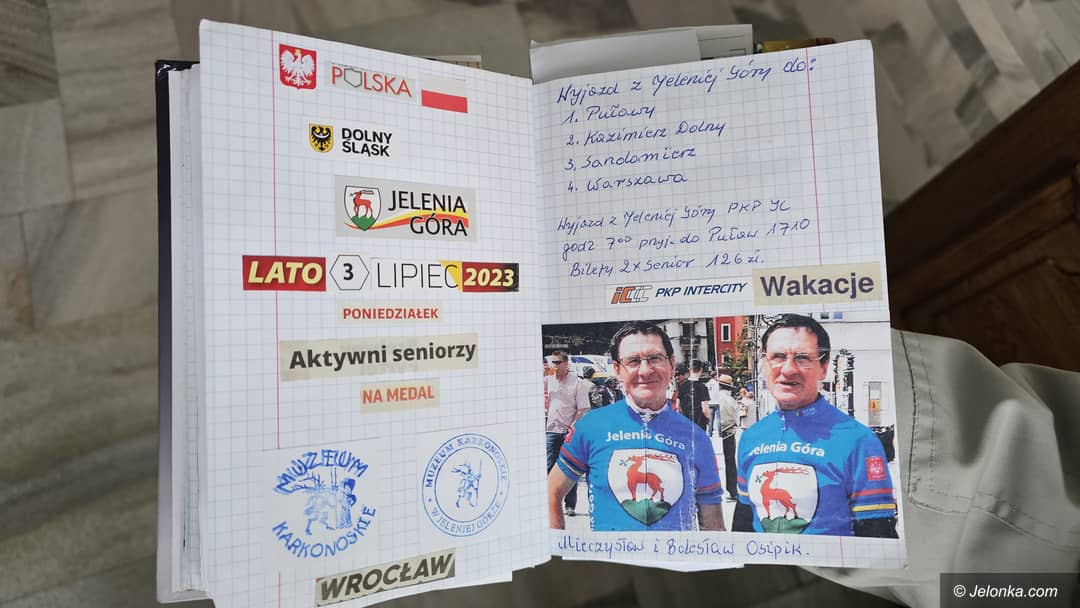 POLSKA
DOLNY
ŚLĄSK
JELENIA
GÓRA
LATO 3 LIPIEC 2023
PONIEDZIAŁEK
Aktywni seniorzy
NA MEDAL
MUZEUM
KARKONOSKIE
MUZEUM KARKONOSKIE
W JELENIEJ GÓRZE
WROCŁAW
Wyjazd z Jeleniej Góry do:
1. Puławy
2. Kazimierz Dolny
3. Sandomierz
4. Warszawa
Wyjazd z Jeleniej Góry PKP JG
godz 7⁰⁰ przyj. do Puław 17¹⁰
Bilety 2x Senior 126 zł.
IC PKP INTERCITY Wakacje
Jelenia Góra
Jelenia Góra
Mieczysław i Bolesław Osipik.
© Jelonka.com